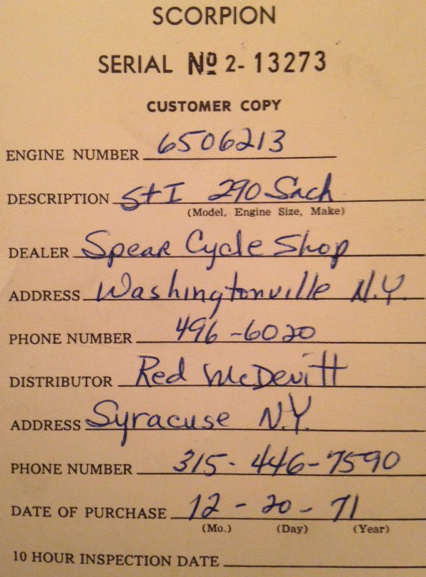 SCORPION
SERIAL Nº 2-13273
CUSTOMER COPY
ENGINE NUMBER 6506213
DESCRIPTION St I 290 Sach
(Model, Engine Size, Make)
DEALER Spear Cycle Shop
ADDRESS Washingtonville N.Y.
PHONE NUMBER 496-6020
DISTRIBUTOR Red McDevitt
ADDRESS Syracuse N.Y.
PHONE NUMBER 315-446-7590
DATE OF PURCHASE 12-20-71
(Mo.) (Day) (Year)
10 HOUR INSPECTION DATE